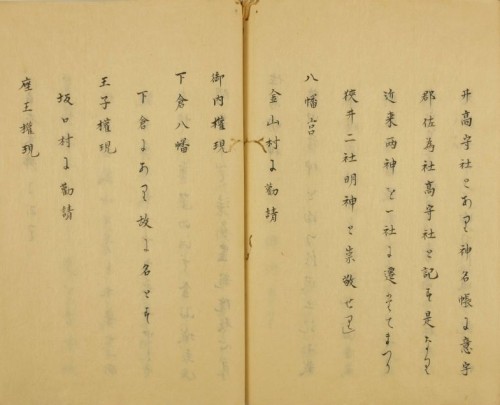 井高守社とあり神名帳に意宇
郡佐為社高守社と記す是なり
近来両神を一社に遷してまつり
狭井二社明神と崇敬せり
八幡宮
金山村に勧請
御内権現
下倉八幡
下倉にあり故に名とす
王子権現
坂口村に勧請
座王権現